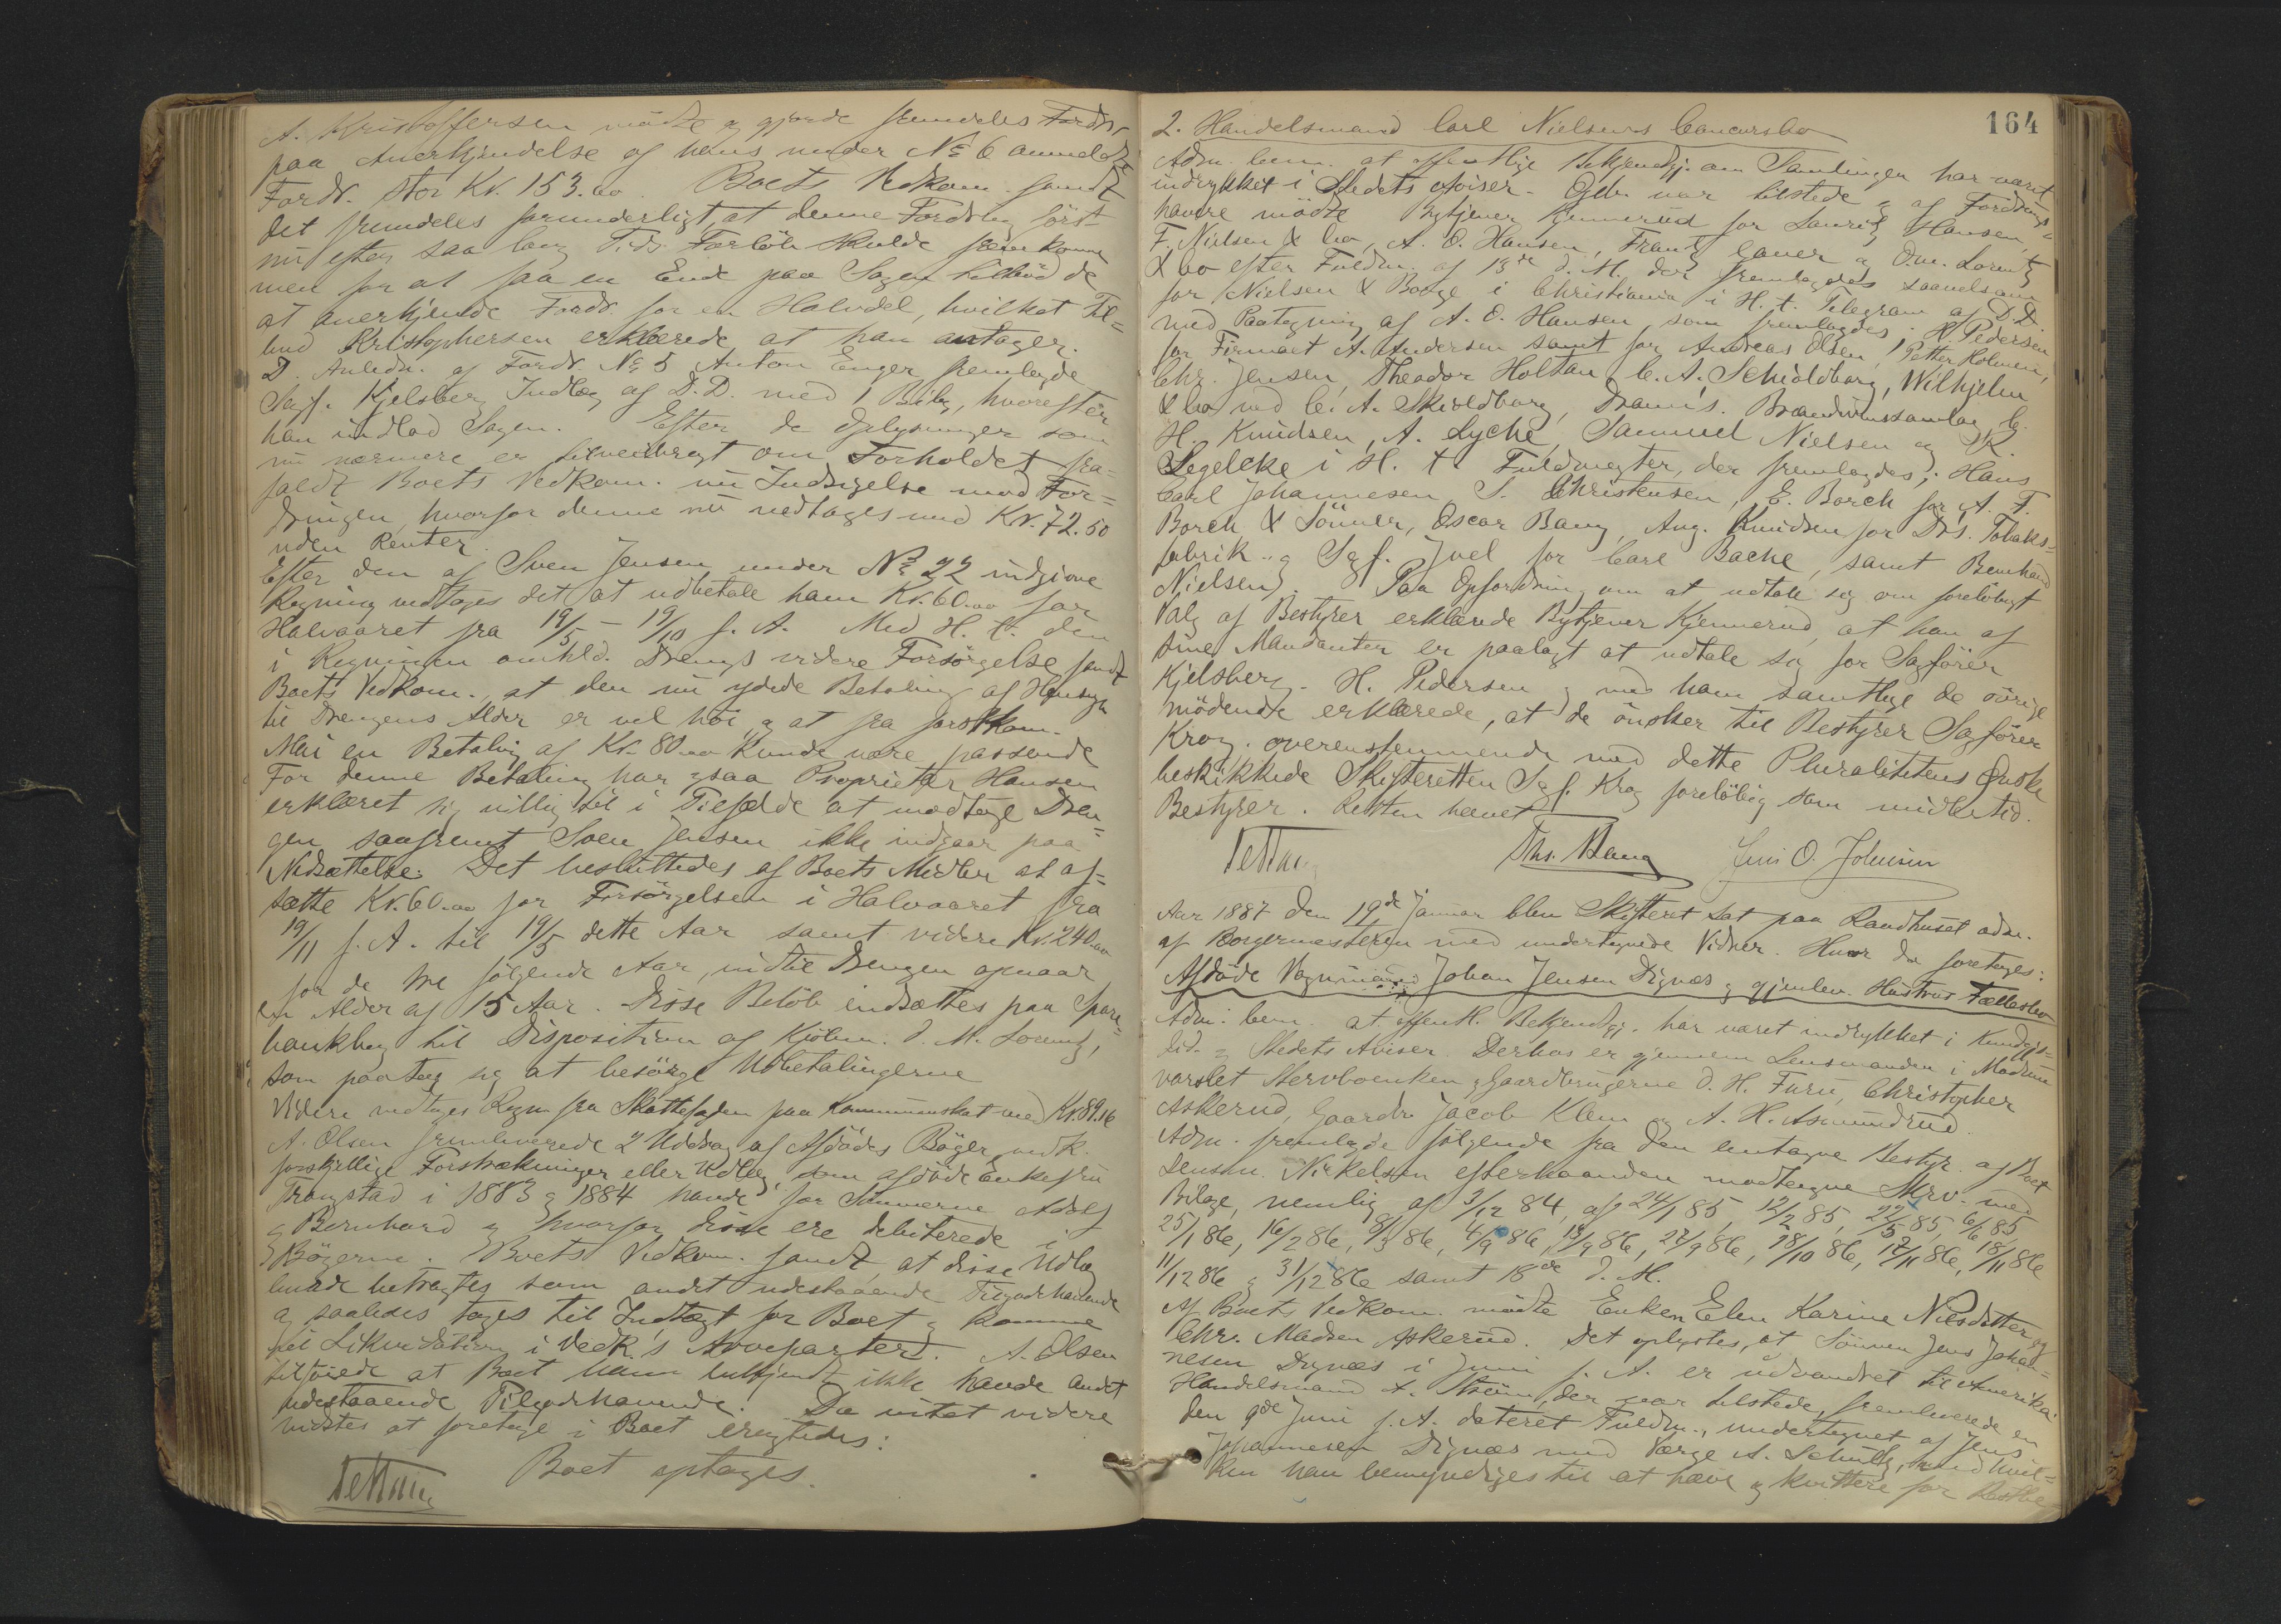 A. Kristoffersen mødte og gjorde fremdeles Fordr.
paa Anerkjendelse af hans under No 6 anmeldte
Fordr. stor Kr. 153.00. Boets Vedkom. fandt
det fremdeles forunderligt, at denne Fordring først
nu efter saa lang Tids Forløb skulde fremkomme
men for at faa en Ende paa Sagen tilbød de
at anerkjende Fordr. for en Halvdel, hvilket Til=
bud Kristophersen erklærede at han antager.
I Anledn. af Fordr. No 5 Anton Enger fremlagde
Sagf. Kjelsberg Indlæg af D.D. med 1 Bilag, hvorefter
han indlod Sagen. Efter de Oplysninger som
nu nærmere er tilveiebragt om Forholdet fra=
faldt Boets Vedkom. nu Indsigelse mod For=
dringen, hvorfor denne nu vedtages med Kr. 72.50
uden Renter.
Efter den af Sven Jensen under No 22 indgivne
Regning vedtages det at udbetale ham Kr. 60.00 for
Halvaaret fra 19/5 – 19/10 f. A. Med H. t. den
i Regningen omhld. Drengs videre Forsørgelse fandt
Boets Vedkom., at den nu ydede Betaling af Hensyn
til Drengens Alder er vel høi og at fra førstkom.
Mai en Betaling af Kr. 80.00 kunde være passende
For denne Betaling har ogsaa Proprietær Hansen
erklæret sig villig til i Tilfælde at modtage Dren=
gen saafremt Sven Jensen ikke indgaar paa
Nedsættelse. Det besluttedes af Boets Midler at af=
sætte Kr. 60.00 for Forsørgelsen i Halvaaret fra
19/11 f. A. til 19/5 dette Aar samt videre Kr. 240.00
for de tre følgende Aar, indtil Drengen opnaar
en Alder af 15 Aar. Disse Beløb indsættes paa Spare=
bankbog til Disposition af Kjøbm. J. M. Lorentz,
som paatog sig at besørge Udbetalingerne
Videre vedtages Regn. fra Skattefogden paa Kommuneskat med Kr. 89.16
A. Olsen fremleverede 2 Uddrag af Afdødes Bøger vedk.
forskjellige Forstrækninger eller Udlæg, som afdøde Enkefru
Trangstad i 1883 og 1884 havde for Sønnerne Adolf
og Bernhard og hvorfor disse ere debiterede i
Bøgerne. Boets Vedkom. fandt, at disse Udlæg
burde betragtes som andet udestaaende Tilgodehavende
og saaledes tages til Indtægt for Boet og komme
til Likvidation i Vedk's Arveparter. A. Olsen
tilføiede at Boet ham bekjendt ikke havde andet
udestaaende Tilgodehavende. Da intet videre
vidstes at foretage i Boet eragtedes:
Boet optages.
164
2. Handelsmand Carl Nielsens Concursbo
Adm. bem. at offentlige Bekjendtgj. om Samlingen har været
indrykket i Stedets Aviser. Ogsaa var tilstede og af Fordrings=
havere mødte Bytjener Kjennerud for Lauritz Hansen,
F. Nielsen & Co, A. O. Hansen, Frantz Cauer og O.m. Lorentz
& Co efter Fuldm. af 13de d. M. der fremlagdes saavelsom
for Nielsen & Borge i Christiania i H. t. Telegram af D.D.
med Paategning af A. O. Hansen, som fremlagdes. H. Pedersen
for Firmaet A. Andersen samt for Andreas Olsen, Petter Holmen,
Chr. Jensen, Theodor Holtan, C. A. Schioldborg, Wilhjelm
& Co ved C. A. Skioldborg, Dram's. Brændevinssamlag, C.
H. Knudsen, A. Lyche, Samuel Nielsen og R.
Segelcke i H. t. Fuldmagter, der fremlagdes; Hans
Carl Johannesen, S. Christensen, E. Borch for A. F.
Borch & Sønner, Oscar Bang, Aug. Knudsen for Drs. Tobaks=
fabrik og Sagf. Juel for Carl Bache, samt Bernhard
Nielsen. Paa Opfordring om at udtale sig om foreløbigt
Valg af Bestyrer erklærede Bytjener Kjennerud, at han af
sine Mandanter er paalagt at udtale sig for Sagfører
Kjelsberg. H. Pedersen og med ham samtlige de øvrige
mødende erklærede, at de ønsker til Bestyrer Sagfører
Krog. Overensstemmende med dette Pluralitetens Ønske
beskikkede Skifteretten Sagf. Krog foreløbig som midlertid.
Bestyrer. Retten hævet
Ths. Bang Jens O. Johnsen
Aar 1887 den 19de Januar blev Skifteret sat paa Raadhuset adm.
af Borgermesteren med undertegnede Vidner. Hvor da foretages:
Afdøde Vognmand Johan Jensen Dignæs og gjenlev. Hustrus Fællesbo
Adm. bem. at offentl. Bekjendtgj. har været indrykket i Kundgjø=
tid. og Stedets Aviser. Derhos er gjennem Lensmanden i Modum
varslet Stervboenken, Gaardbrugerne O. H. Furu, Christopher
Askerud, Gaardbr. Jacob Klem og A. H. Asmundrud.
Adm. fremlagde følgende fra den antagne Bestyr. af Boet
Lensm. Nickelsen efterhaanden modtagne Skriv. med
Bilage, nemlig af 3/12 84, af 24/1 85, 12/2 85, 22/5 85, 6/6 85,
25/1 86, 16/2 86, 8/3 86, 4/9 86, 13/9 86, 27/9 86, 28/10 86, 17/11 86, 18/11 86
11/12 86 og 31/12 86 samt 18de d. M.
Af Boets Vedkom. mødte Enken Elen Karine Nilsdatter og
Chr. Madsen Askerud. Det oplystes, at Sønnen Jens Johan=
nesen Dignæs i Juni f. A. er udvandret til Amerika.
Handelsmand A. Strøm, der var tilstede, fremleverede en
den 9de Juni f. A. dateret Fuldm., undertegnet af Jens
Johannesen Dignæs med Værge A. Schultz, ved hvil=
ken han bemyndiges til at hæve og kvittere for